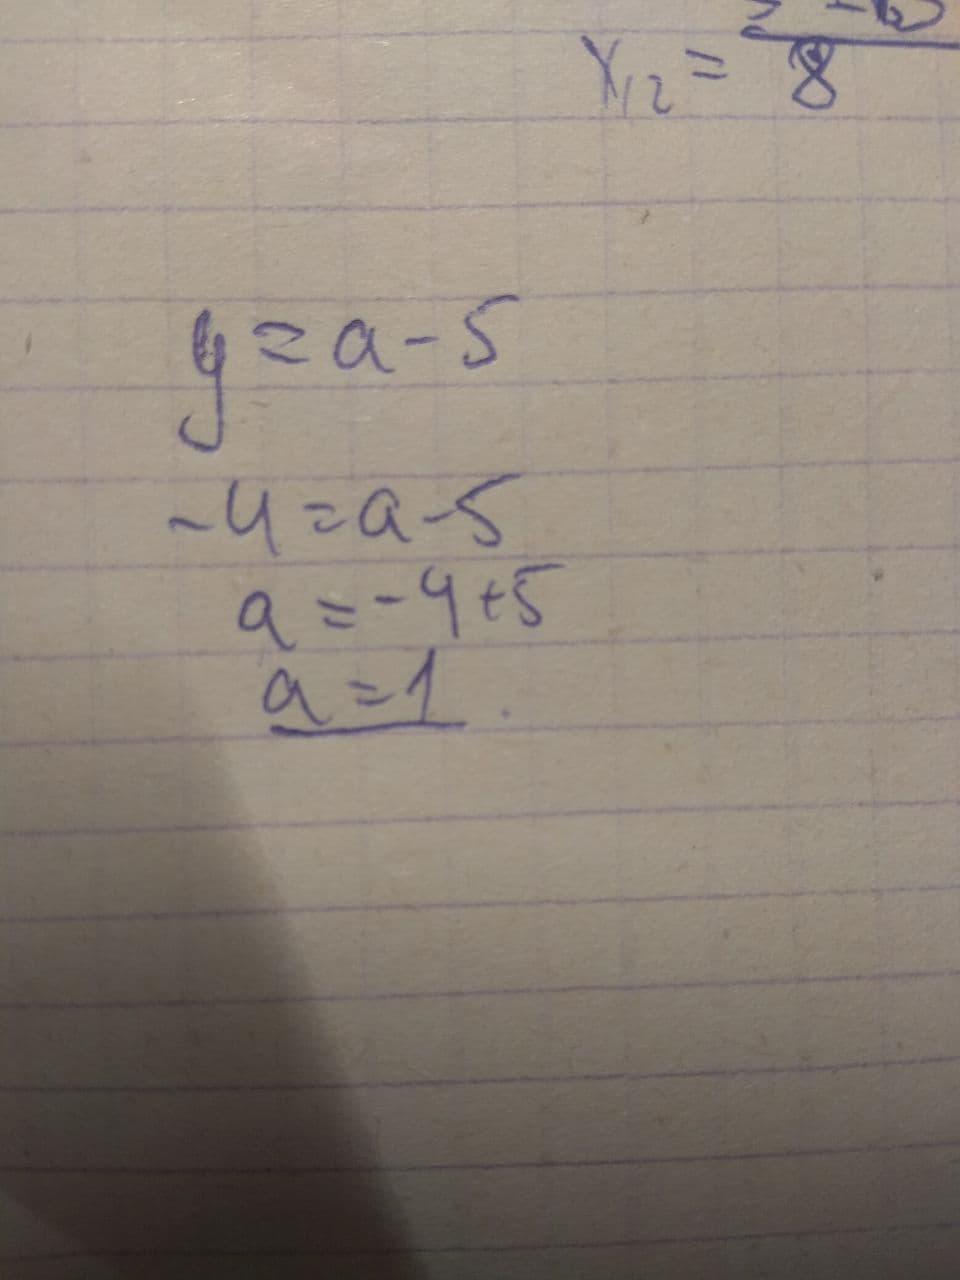 x₁₂ = 8
y = a - 5
-4 = a - 5
a = -4 + 5
a = 1.